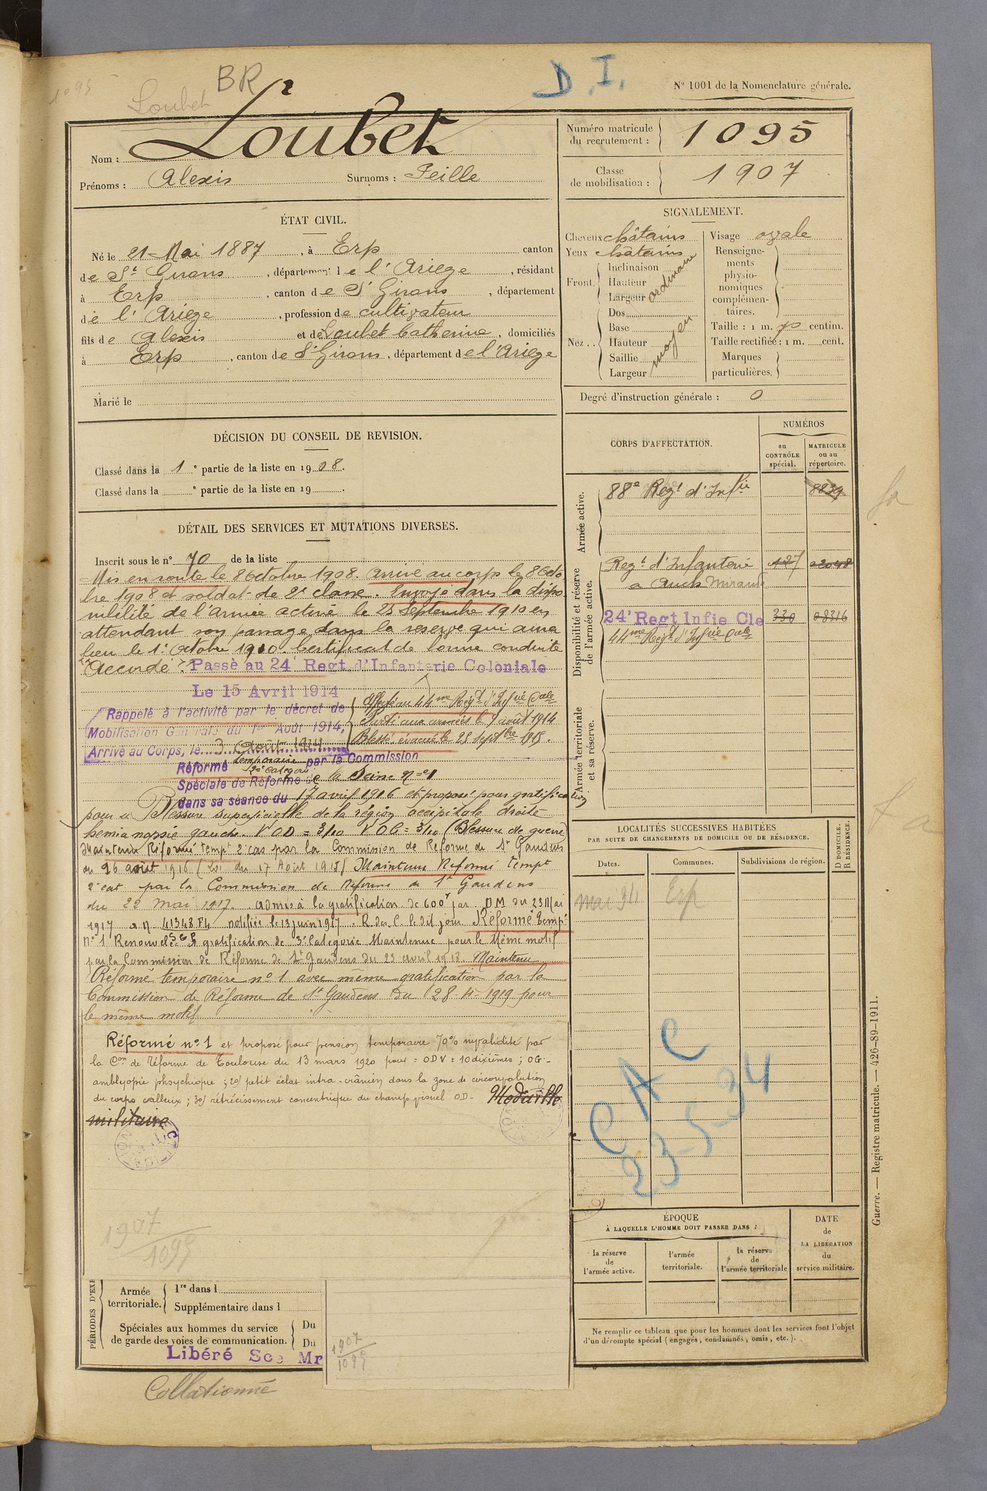 1095
Loubet
BR
D.I.
N° 1001 de la Nomenclature générale.
Nom : Loubet
Prénoms : Alexis Surnoms : Feille
Numéro matricule du recrutement : 1095
Classe de mobilisation : 1907
ÉTAT CIVIL.
Né le 21 Mai 1887, à Erp canton
de St Girons, département de l'Ariège, résidant
à Erp, canton de St Girons, département
de l'Ariège, profession de cultivateur
fils de Alexis et de Loubet Catherine, domiciliés
à Erp, canton de St Girons, département de l'Ariège
Marié le
SIGNALEMENT.
Cheveux châtains
Yeux châtains
Front Inclinaison Hauteur Largeur ordinaire
Nez Dos Base Hauteur Saillie Largeur moyen
Visage ovale
Renseignements physionomiques complémentaires.
Taille : 1 m. 70 centim.
Taille rectifiée : 1 m. cent.
Marques particulières.
Degré d'instruction générale : 0
DÉCISION DU CONSEIL DE REVISION.
Classé dans la 1e partie de la liste en 1908.
Classé dans la e partie de la liste en 19
DÉTAIL DES SERVICES ET MUTATIONS DIVERSES.
Inscrit sous le n° 70 de la liste
Mis en route le 8 Octobre 1908. Arrivé au corps le 8 Octo
bre 1908 et soldat de 2e classe. Envoyé dans la dispo
nibilité de l'Armée active le 25 Septembre 1910 en
attendant son passage dans la réserve qui aura
lieu le 1er Octobre 1910. Certificat de bonne conduite
"Accordé". Passé au 24e Regt d'Infanterie Coloniale
Le 15 Avril 1914
Rappelé à l'activité par le décret de
Mobilisation Générale du 1er Août 1914,
Arrivé au Corps, le 3 Août 1914
Affecté au 44me Régt d'Infie Cale
Parti aux armées le 7 août 1914
Blessé évacué le 25 Septbre 1915.
Réformé temporaire 2e catégorie par la Commission
Spéciale de Réforme de la Seine n° 1
dans sa séance du 17 avril 1916 et proposé pour gratification
pour Blessure superficielle de la région occipitale droite
hémianopsie gauche. V OD = 3/10 V OG = 3/10 (Blessure de guerre)
Maintenu Réformé tempre 2e cat par la Commission de Réforme de St Gaudens
du 26 août 1916 (Loi du 17 Août 1915) Maintenu Réformé tempre
2e cat par la Commission de Réforme de St Gaudens
du 22 mai 1917. admis à la gratification de 600f par DM du 23 Mai
1917 n° 41348 P4 notifiée le 13 juin 1917. Réformé tempre
n° 1 Renouvelée la gratification de 3e Catégorie Maintenue pour le Même motif
par la Commission de Réforme de St Gaudens du 22 avril 1918. Maintenu
Réformé temporaire n° 1 avec même gratification par la
Commission de Réforme de St Gaudens du 28-4-1919 pour
le même motif
Réformé n° 1 et proposé pour pension temporaire 70% invalidité par
la Con de Réforme de Toulouse du 13 mars 1920 pour = ODV = 10 dixièmes ; OG -
amblyopie phsychique ; 2e/ petit éclat intra-crânien dans la zone de circonvolution
du corps calleux ; 3e/ rétrécissement concentrique du champ visuel OD. Médaille
militaire
1907
1095
CORPS D'AFFECTATION.
NUMÉROS
au CONTRÔLE spécial.
MATRICULE ou au répertoire.
Armée active.
88e Regt d'Infie 8839
Disponibilité et réserve de l'armée active.
Regt d'Infanterie
a Auch Mirande
24e Regt Infie Cle 330 08316
44me Regt d'Infie Cale
Armée territoriale et sa réserve.
LOCALITÉS SUCCESSIVES HABITÉES
PAR SUITE DE CHANGEMENTS DE DOMICILE OU DE RÉSIDENCE.
Dates. Communes. Subdivisions de région. D DOMICILE. R RÉSIDENCE.
mai 34 Erp
CAC
23-5-34
ÉPOQUE
À LAQUELLE L'HOMME DOIT PASSER DANS :
la réserve de l'armée active.
l'armée territoriale.
la réserve de l'armée territoriale
DATE de LA LIBÉRATION du service militaire.
Ne remplir ce tableau que pour les hommes dont les services font l'objet
d'un décompte spécial (engagés, condamnés, omis, etc.).
PÉRIODES D'EXE
Armée territoriale. 1re dans l
Supplémentaire dans l
Spéciales aux hommes du service de garde des voies de communication. Du
Du
Libéré Sce Mr
1907
1095
Collationné
Guerre. — Registre matricule. — 426-89-1911.